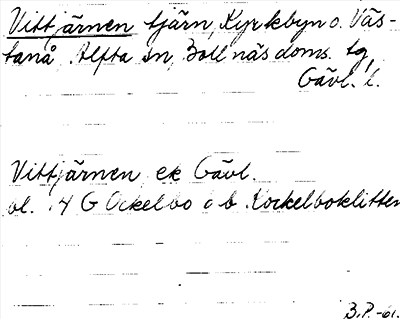 Vittjärnen tjärn, Kyrkbyn o. Väs-
tanå Alfta sn, Bollnäs doms. tg,
Gävl. l.
Vittjärnen ek Gävl.
bl. 14 G Ockelbo c b Kockelboklitten
B.P.-61.